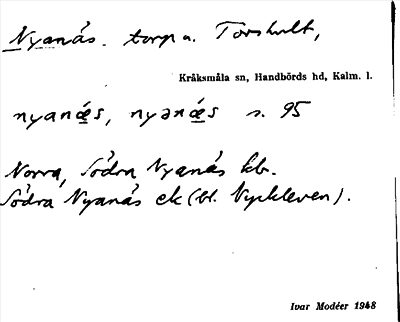 Nyanås. torp u. Torshult,
Kråksmåla sn, Handbörds hd, Kalm. l.
nyanǽs, nyənǽs s. 95
Norra, Södra Nyanås kb.
Södra Nyanås ek (bl. Nyckleven).
Ivar Modéer 1948